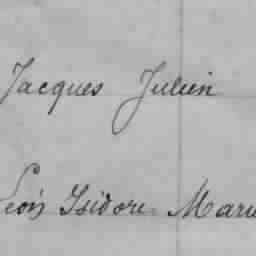 Jacques Julien
Léon Isidore Marie